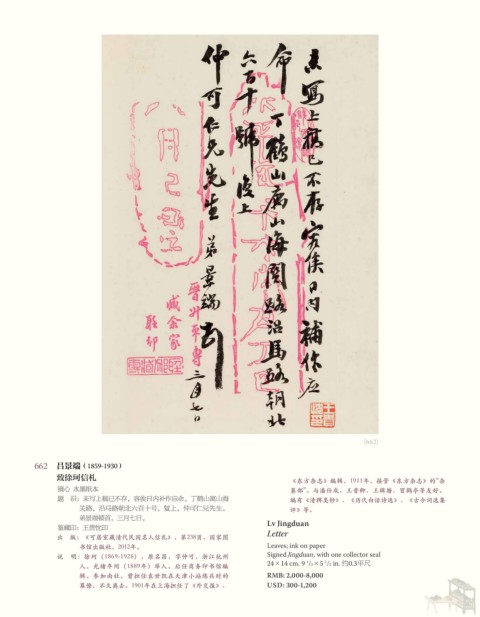 未写上稿已不存容俟日内補作应
命丁鶴山寓山海関路沿馬路朝北
六百十號復上
仲可仁兄先生弟景端頓首
三月七日
晋州平專
臧余家
(662)
662 吕景端（1859-1930）
致徐珂信札
镜心 水墨纸本
题　识：未写上稿已不存，容俟日内补作应命。丁鹤山寓山海
关路，沿马路朝北六百十号。复上，仲可仁兄先生，
弟景端顿首。三月七日。
鉴藏印：王贵忱印
出　版：《可居室藏清代民国名人信札》，第238页，国家图
书馆出版社，2012年。
说　明：徐珂（1869-1928），原名昌，字仲可，浙江杭州
人。光绪年间（1889年）举人。后任商务印书馆编
辑。参加南社。曾担任袁世凯在天津小站练兵时的
幕僚，不久离去。1901年在上海担任了《外交报》、
《东方杂志》编辑，1911年，接管《东方杂志》的“杂
纂部”。与潘仕成、王晋卿、王辑塘、冒鹤亭等友好。
编有《清稗类钞》、《历代白话诗选》、《古今词选集
评》等。
Lv Jingduan
Letter
Leaves; ink on paper
Signed Jingduan, with one collector seal
24 × 14 cm. 9 1/2 × 5 1/2 in. 约0.3平尺
RMB: 2,000-8,000
USD: 300-1,200